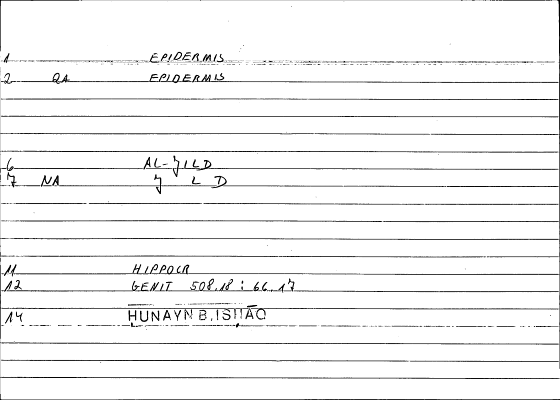 1 EPIDERMIS
2 QA EPIDERMIS
6 AL-JILD
7 NA J L D
11 HIPPOCR
12 GENIT 508.18 : 66.17
14 HUNAYN B. ISḤĀQ